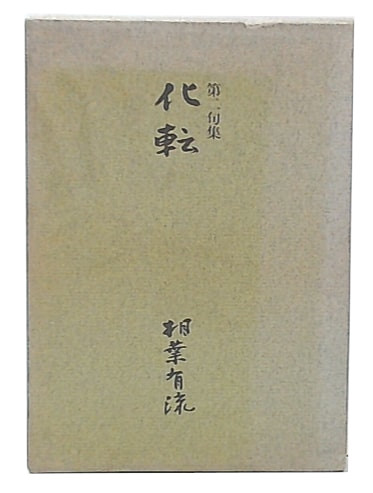 第二句集
化転
相葉有流